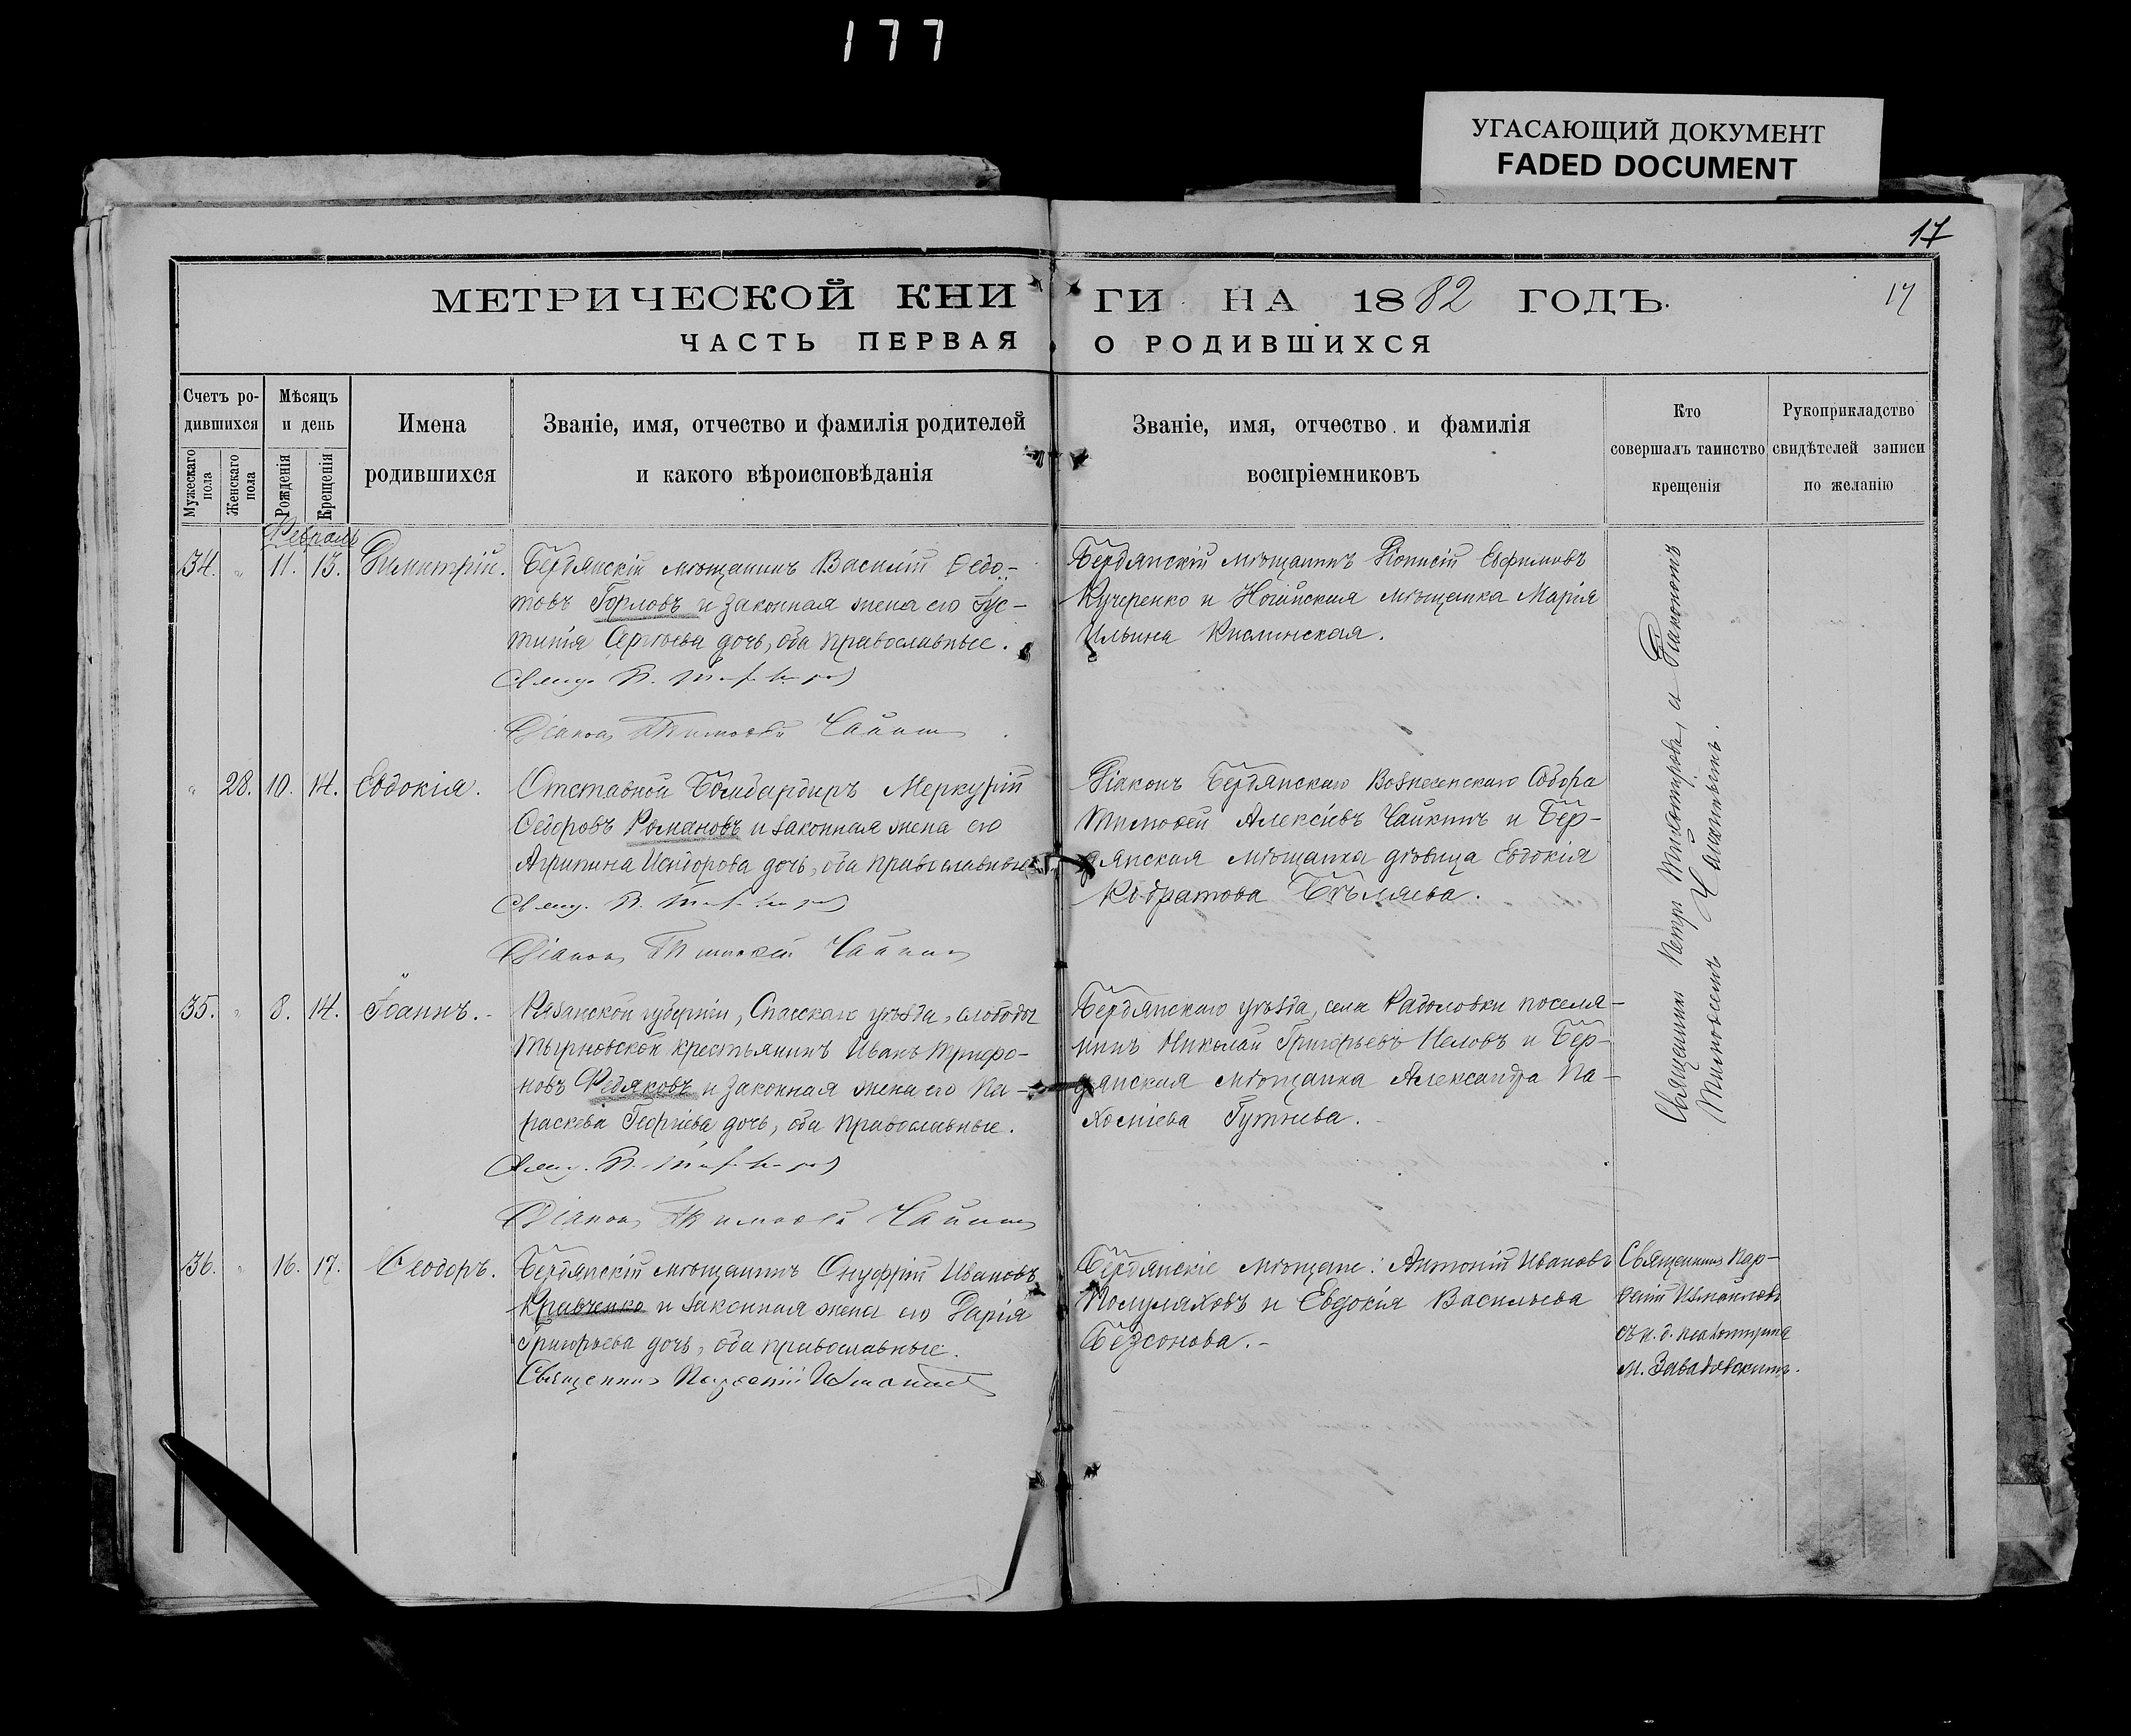 177
УГАСАЮЩИЙ ДОКУМЕНТ
FADED DOCUMENT
17
17
МЕТРИЧЕСКОЙ КНИГИ НА 1882 ГОДЪ.
ЧАСТЬ ПЕРВАЯ О РОДИВШИХСЯ
Счетъ ро-
дившихся
Мужескаго
пола
Женскаго
пола
Мѣсяцъ
и день
Рожденія
Крещенія
Имена
родившихся
Званіе, имя, отчество и фамилія родителей
и какого вѣроисповѣданія
Званіе, имя, отчество и фамилія
воспріемниковъ
Кто
совершалъ таинство
крещенія
Рукоприкладство
свидѣтелей записи
по желанію
Февраль
34. " 11. 13. Димитрій.
Бердянскій мѣщанинъ Василій Ѳедо-
товъ Горловъ и законная жена его Іус-
тинія Сергѣева дочь, оба православные.
Свящ. П.
Діаконъ Тимоѳей Чайкинъ
Бердянскій мѣщанинъ Діонисій Евфимовъ
Кучеренко и Ногайская мѣщанка Марія
Ильина Кислинская.
Священникъ Петръ и Діаконотъ
Тимоѳеемъ Чайкинымъ.
" 28. 10. 14. Евдокія.
Отставной Бомбардиръ Меркурій
Ѳедоровъ Романовъ и законная жена его
Агрипина Исидорова дочь, оба православные.
Свящ. П.
Діаконъ Тимоѳей Чайкинъ
Діаконъ Бердянскаго Вознесенскаго Собора
Тимоѳей Алексіевъ Чайкинъ и Бер-
дянская мѣщанка дѣвица Евдокія
Кодратова Бѣляева.
35. " 8. 14. Іоаннъ.
Рязанской губерніи, Спасскаго уѣзда, слободы
Тырновской крестьянинъ Иванъ Трифо-
новъ Федяковъ и законная жена его Па-
раскева Георгіева дочь, оба православные.
Свящ. П.
Діаконъ Тимоѳей Чайкинъ
Бердянскаго уѣзда, села Радоловки поселя-
нинъ Николай Григорьевъ Неловъ и Бер-
дянская мѣщанка Александра Па-
хоміева Гутнева.
36. " 16. 17. Ѳеодоръ.
Бердянскій мѣщанинъ Онуфрій Ивановъ
Кравченко и законная жена его Дарія
Григорьева дочь, оба православные.
Священникъ Парѳеній Измаиловъ
Бердянскіе мѣщане: Антоній Ивановъ
Полуляховъ и Евдокія Васильева
Безсонова.
Священникъ Пар-
ѳеній Измаиловъ
съ и. д. псаломщика
М. Завадовскимъ.